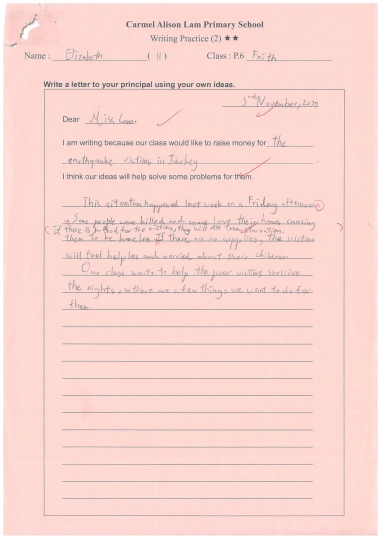 Carmel Alison Lam Primary School
Writing Practice (2) ★★
Name : Elizabeth ( 11 ) Class : P.6 Faith
Write a letter to your principal using your own ideas.
3rd November, 20
Dear Miss Lam.
I am writing because our class would like to raise money for the
earthquake victims in Turkey
I think our ideas will help solve some problems for them.
This situation happened last week on a Friday afternoon
. Some people were killed and some lost their homes causing
( if there is no food for the victims, they will die from starvation. )
them to be homeless. If there are no supplies, the victims
will feel helpless and worried about their children.
Our class wants to help the poor victims survive
the nights, so there are a few things we want to do for
them.